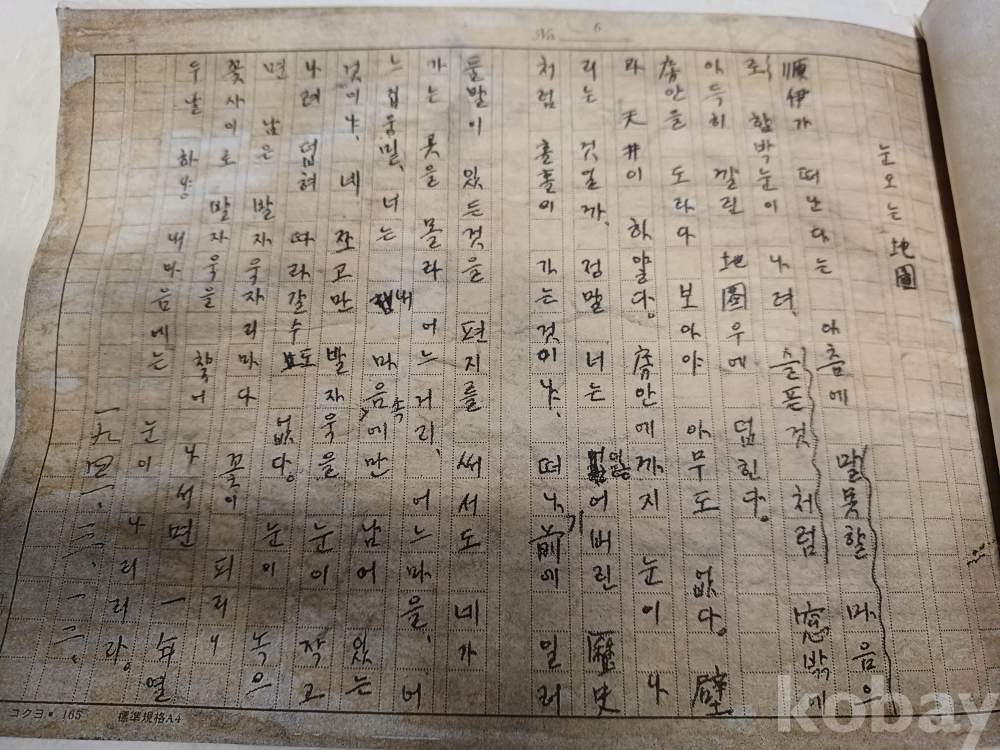 No 6
눈오는 地圖
順伊가 떠난다는 아츰에 말못할 마음으
로 함박눈이 나려, 슬픈것 처럼 窓밖에
아득히 깔린 地圖우에 덥힌다。
房안을 도라다 보아야 아무도 없다。 壁
과 天井이 하얗다。 房안에까지 눈이 나
리는 것일까, 정말 너는 잃어버린 歷史
처럼 홀홀이 가는것이냐, 떠나기前에 일러
둘말이 있든것을 편지를 써서도 네가
가는 곳을 몰라 어느거리, 어느마을, 어
느 집웅밑, 너는 내 마음속에만 남어 있는
것이냐, 네 쪼고만 발자욱을 눈이 작고
나려 덥혀 따라갈수도 없다。 눈이 녹으
면 남은 발자욱자리마다 꽃이 피리니
꽃사이로 발자욱을 찾어 나서면 一年열
두달 하냥 내마음에는 눈이 나리리라。
一九四一·三·一二.
コクヨ・165 標準規格A4
kobay